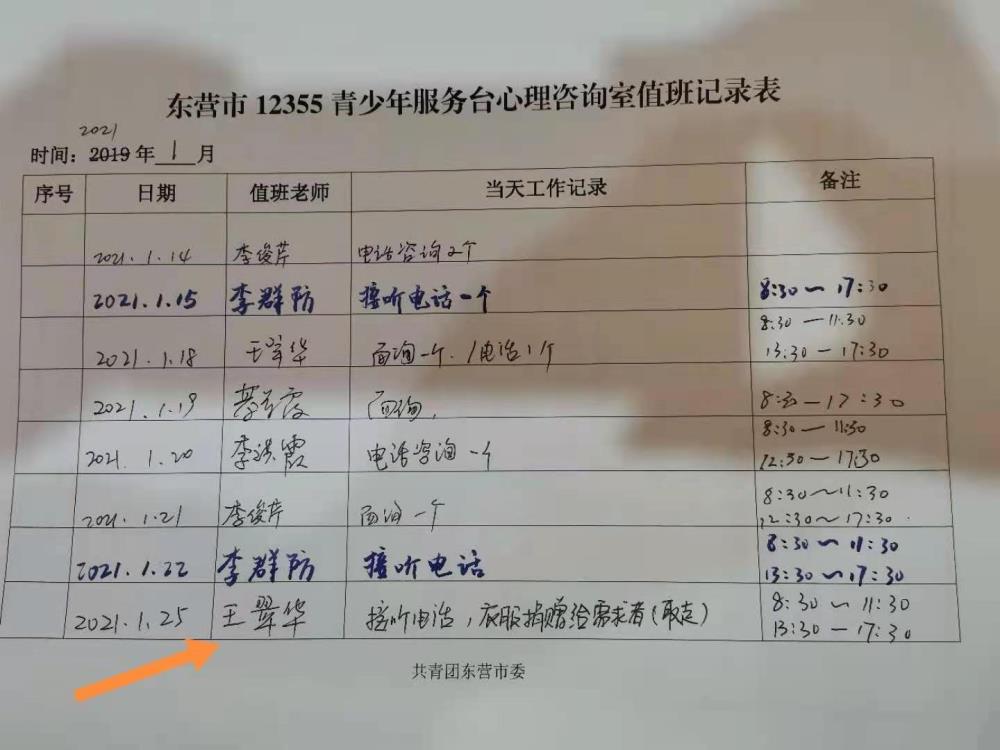 东营市 12355 青少年服务台心理咨询室值班记录表
2021
时间：2019 年 1 月
序号 日期 值班老师 当天工作记录 备注
2021.1.14 李俊芹 电话咨询2个
2021.1.15 李群防 接听电话一个 8:30—17:30
8:30—11:30
2021.1.18 王翠华 面询一个./电话1个 13:30—17:30
2021.1.19 面询. 8:30—17:30
8:30—11:30
2021.1.20 李洪霞 电话咨询一个 12:30—17:30
8:30～11:30
2021.1.21 李俊芹 面询一个 12:30～17:30.
8:30—11:30
2021.1.22 李群防 接听电话 13:30～17:30
8:30—11:30
2021.1.25 王翠华 接听电话，衣服捐赠给需求者(取走) 13:30—17:30
共青团东营市委